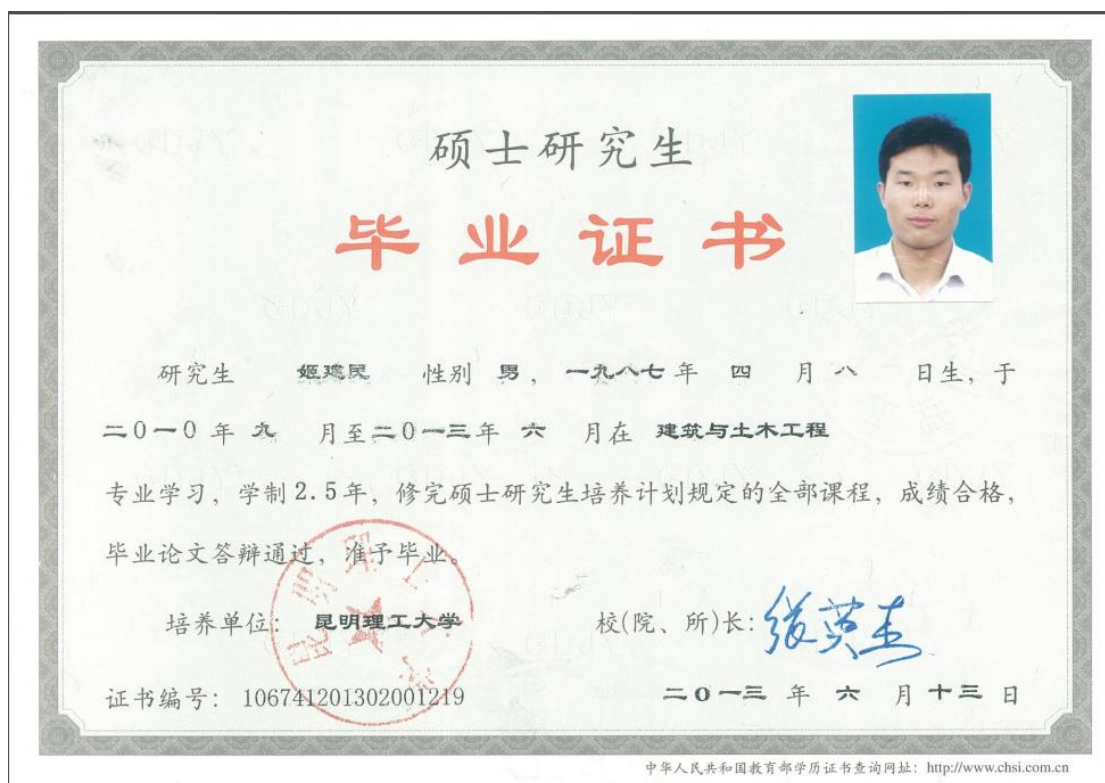 硕士研究生
毕业证书
研究生 姬建民 性别 男，一九八七年 四 月 八 日生，于
二0一0年 九 月至二0一三年 六 月在 建筑与土木工程
专业学习，学制2.5年，修完硕士研究生培养计划规定的全部课程，成绩合格，
毕业论文答辩通过，准予毕业。
昆明理工大学
培养单位：昆明理工大学
校(院、所)长：张英杰
证书编号：106741201302001219
二0一三 年 六 月十三日
中华人民共和国教育部学历证书查询网址：http://www.chsi.com.cn